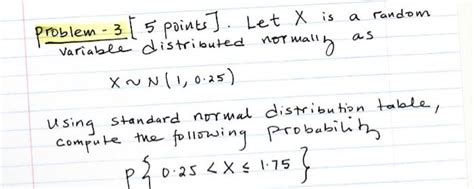 Problem - 3 [ 5 points ]. Let X is a random
variable distributed normally as
X ~ N ( 1, 0.25 )
Using standard normal distribution table,
compute the following probability
P { 0.25 < X ≤ 1.75 }